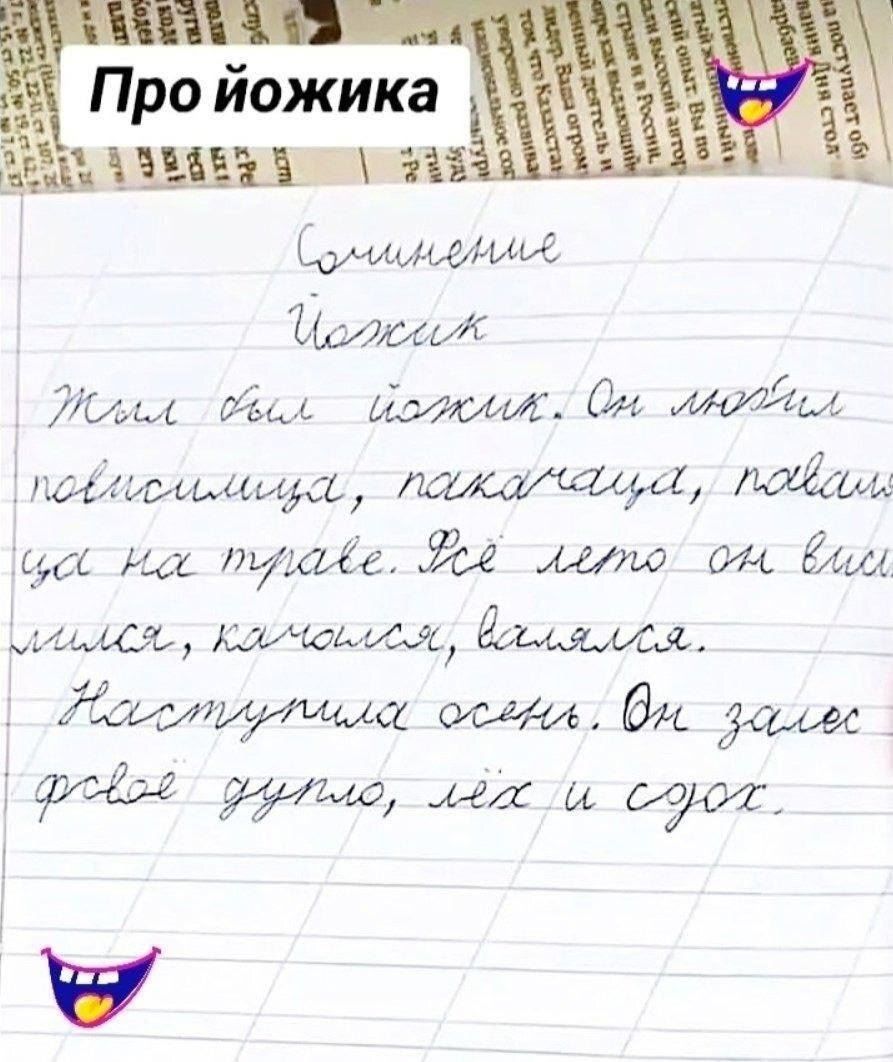 Про йожика
Сочинение
Йожик
Жыл был йожик. Он любил
повисилица, пакачаца, паваля
ца на траве. Фсё лето он виси
лился, качался, валялся.
Наступила осень. Он залес
фсвоё дупло, лёх и сдох.